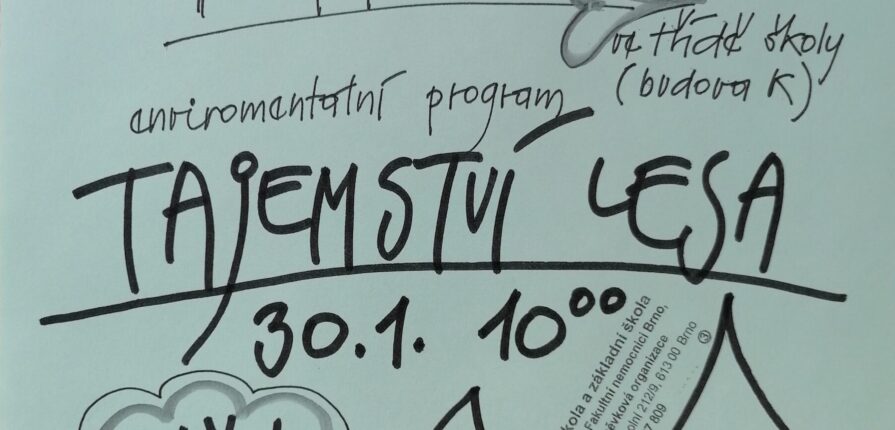 ve třídě školy
(budova K)
enviromentatní program
TAJEMSTVÍ LESA
30.1. 10⁰⁰
kola a základní škola
Fakultní nemocnici Brno,
ěvková organizace
olní 212/9, 613 00 Brno
7 809
3